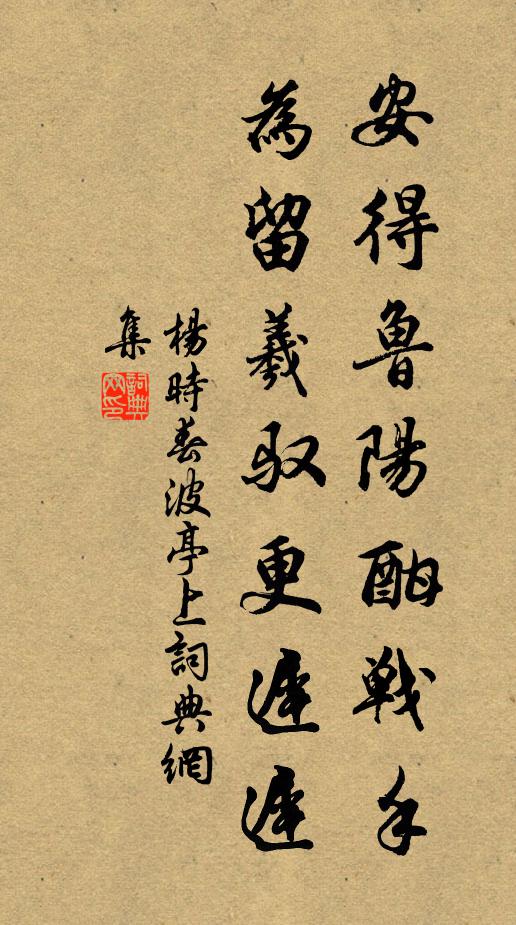 安得魯陽酣戰手
為留羲馭更遲遲
楊時春波亭上詞典網
集
詞典網印